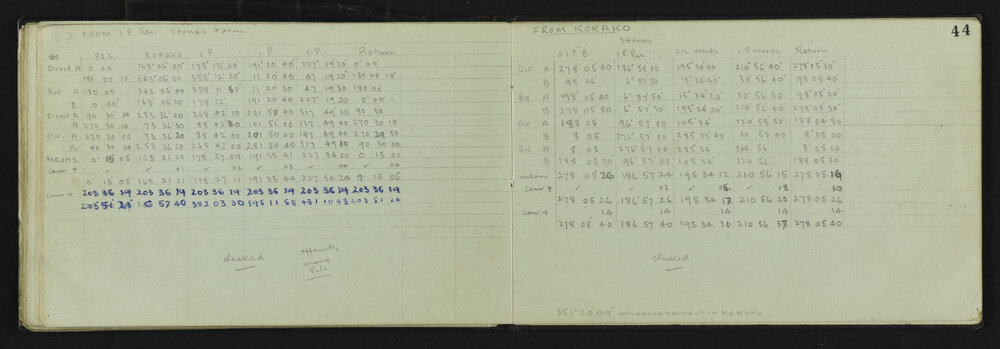 FROM I.P. Res. Stones Farm.
802 KOKAKO I.P. I.P. I.P. Return
Direct A 0 00 163° 06' 20 178° 12' 20 191° 20 40 227° 19 20 0° 00'
B 180 00 10 343° 06 30 358° 12' 20 11 20 40 47 19 20 180 00 10
Rev. A 180 00 343 06 00 11 20 30 47 19 30 180° 00'
B 0 00' 163° 06' 20 178 12' 191 20 40 227° 19 20 0° 00'
Direct A 90 30 20 253 36 20 268 42 10 281 50 40 317 49 20 90 30
B 270 30 10 73 36 30 88 42 30 101 51 00 137 49 40 270 30 10
Rev. A 270 30 00 73 36 20 88 42 00 101 50 40 137 49 00
B 90 30 20 253 36 20 268 42 00 281 50 40 317 49 00 90 30 00
MEANS 0° 15 05 163 21 20 178 27 09 191 35 41 227 34 20 0 15 01
corr + ✓ 01 ✓ 02 ✓ 03 ✓ 04 ✓ 04
0 15 05 163 21 21 178 27 11 191 35 44 227 34 24 0 15 05
corr + 203 36 19 203 36 19 203 36 19 203 36 19 203 36 19 203 36 19
203 51 24 57 40 382 03 30 395 11 58 431 10 43 203 51 24
checked
apparently
wrong
Pole
FROM KOKAKO
44
Stones
O.I.P. B. I.P. Res. I.S. Woods I.P. Woods Return
Dir. A 278 05 40 186° 58 00 195° 34' 40 210° 56 40" 278° 05 30
B 98 06' 6° 57' 50 15° 34' 40 30° 56 40 98 05 40
Rev. A 98° 05 40 6° 57' 50" 15° 34' 20 30° 56 30 98° 05 20
B 278 05 50 6° 57' 30 195° 34' 20" 210 56 40 278 05 40
Dir A 188 05 96° 57' 00 105° 34' 120° 55 50 188° 04 50
B 8 05 276° 57' 00 285 34 40 8° 05 00
Rev A 8 05 276 57 00 285 34 300 56 8° 05 00
B 188 05 20 96° 57 00 105 34 120 56 188 05 20
mean 278 05 26 186° 57 24 195 34 12 210 56 15 278 05 16
corr + ✓ ✓ 02 ✓ ✓ 08 10
278 05 26 186° 57 26 195 34 17 210 56 23 278 05 26
corr + 14 14 14 14 14
278 05 40 186 57 40 195 34 210 56 37 278 05 40
checked
351° 20' 09" KOKAKO.